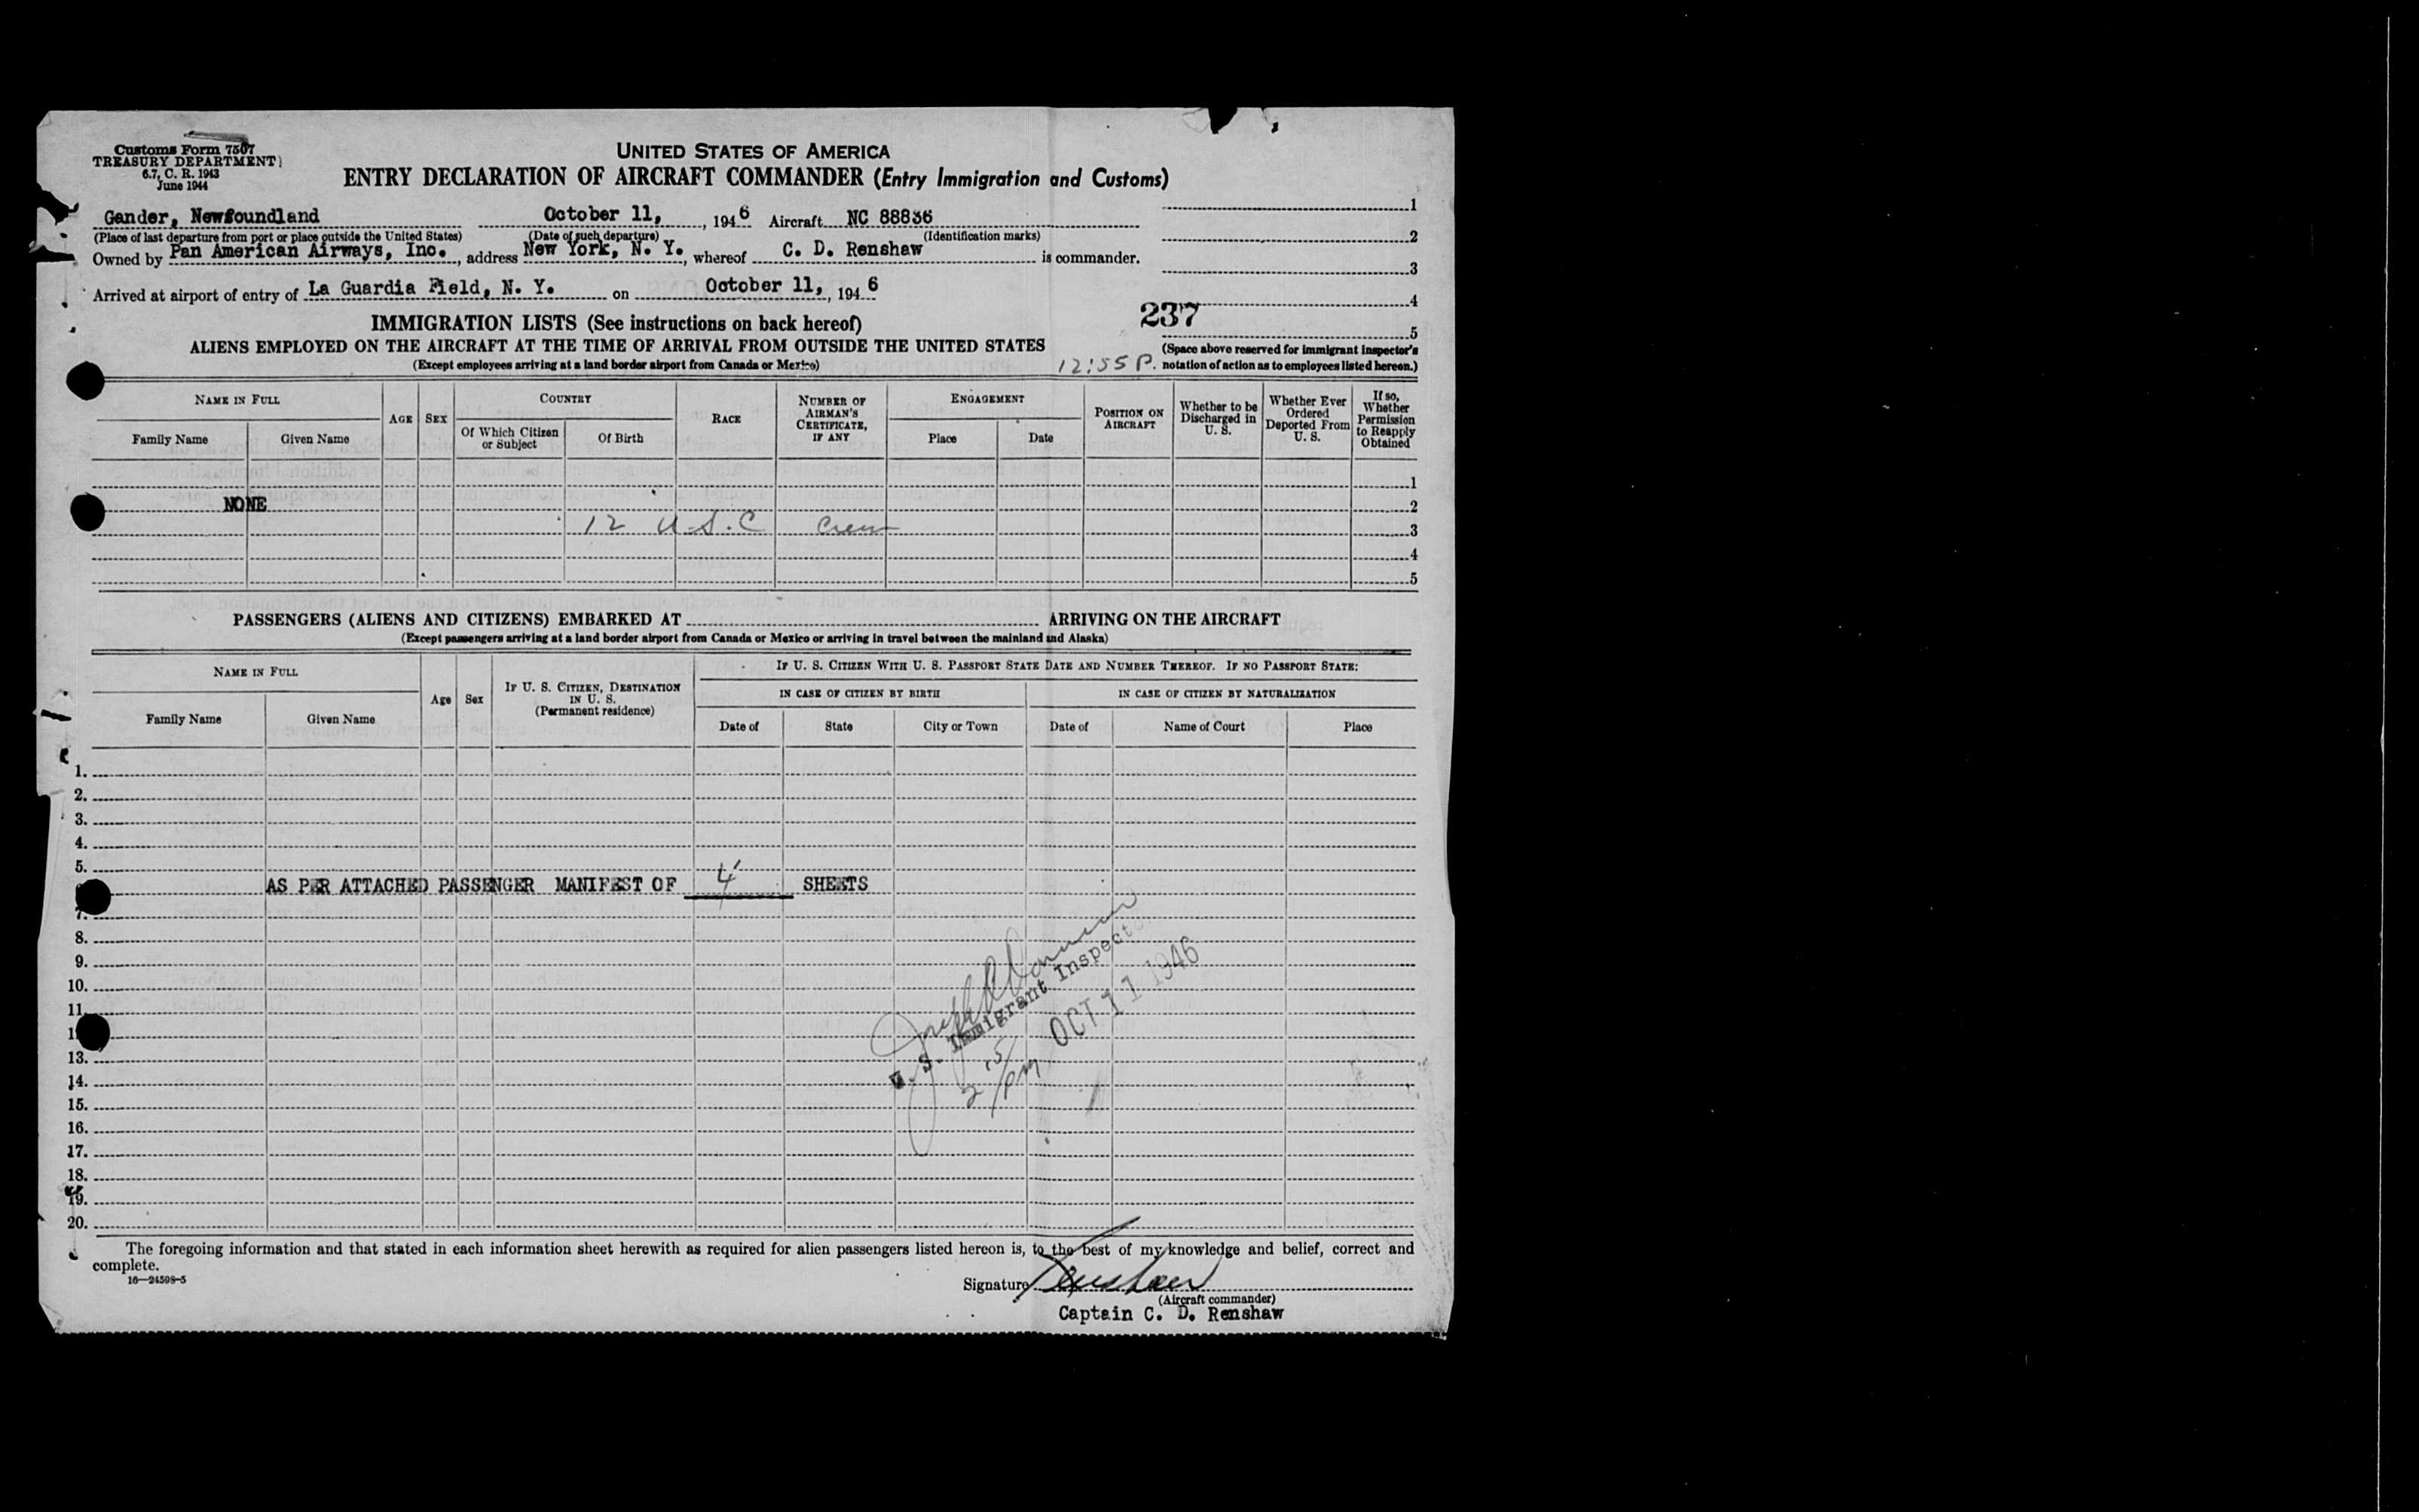 Customs Form 7507
TREASURY DEPARTMENT
6.7, C. R. 1943
June 1944
UNITED STATES OF AMERICA
ENTRY DECLARATION OF AIRCRAFT COMMANDER (Entry Immigration and Customs)
Gander, Newfoundland October 11, 1946 Aircraft NC 88836
(Place of last departure from port or place outside the United States) (Date of such departure) (Identification marks)
Owned by Pan American Airways, Inc., address New York, N. Y., whereof C. D. Renshaw is commander.
Arrived at airport of entry of La Guardia Field, N. Y. on October 11, 1946
1
2
3
4
5
237
(Space above reserved for immigrant inspector's
notation of action as to employees listed hereon.)
12:55 P.
IMMIGRATION LISTS (See instructions on back hereof)
ALIENS EMPLOYED ON THE AIRCRAFT AT THE TIME OF ARRIVAL FROM OUTSIDE THE UNITED STATES
(Except employees arriving at a land border airport from Canada or Mexico)
NAME IN FULL
Family Name Given Name
AGE
SEX
COUNTRY
Of Which Citizen or Subject
Of Birth
RACE
NUMBER OF AIRMAN'S CERTIFICATE, IF ANY
ENGAGEMENT
Place Date
POSITION ON AIRCRAFT
Whether to be Discharged in U. S.
Whether Ever Ordered Deported From U. S.
If so, Whether Permission to Reapply Obtained
1
NONE 2
12 U.S.C Crew 3
4
5
PASSENGERS (ALIENS AND CITIZENS) EMBARKED AT ARRIVING ON THE AIRCRAFT
(Except passengers arriving at a land border airport from Canada or Mexico or arriving in travel between the mainland and Alaska)
NAME IN FULL
Family Name Given Name
Age
Sex
IF U. S. CITIZEN, DESTINATION IN U. S.
(Permanent residence)
IF U. S. CITIZEN WITH U. S. PASSPORT STATE DATE AND NUMBER THEREOF. IF NO PASSPORT STATE:
IN CASE OF CITIZEN BY BIRTH IN CASE OF CITIZEN BY NATURALIZATION
Date of State City or Town Date of Name of Court Place
1.
2.
3.
4.
5.
AS PER ATTACHED PASSENGER MANIFEST OF 4 SHEETS
7.
8.
9.
10.
11.
13.
14.
15.
16.
17.
18.
19.
20.
U. S. Immigrant Inspector
OCT 11 1946
The foregoing information and that stated in each information sheet herewith as required for alien passengers listed hereon is, to the best of my knowledge and belief, correct and
complete.
16—24598-5
Signature Renshaw
(Aircraft commander)
Captain C. D. Renshaw